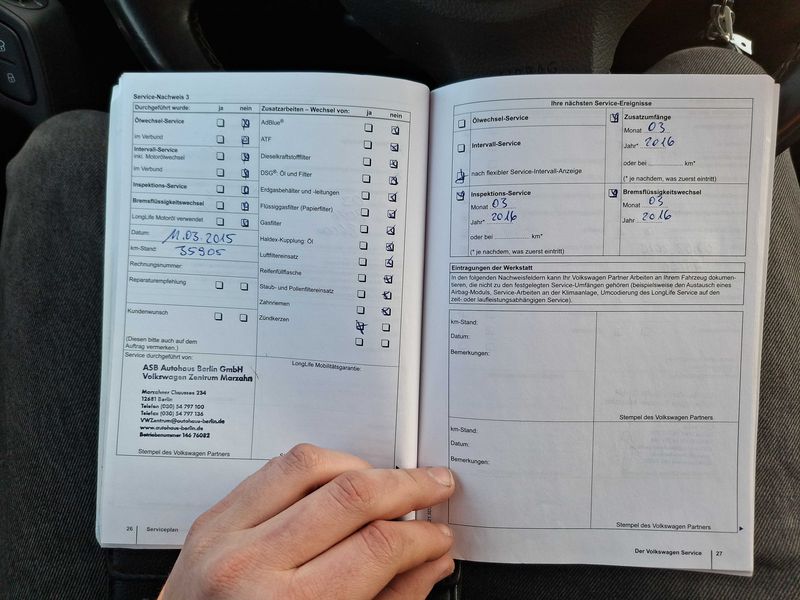 Service-Nachweis 3
Durchgeführt wurde: ja nein
Ölwechsel-Service
im Verbund
Intervall-Service
inkl. Motorölwechsel
im Verbund
Inspektions-Service
Bremsflüssigkeitswechsel
LongLife Motoröl verwendet
Datum: 11.03.2015
km-Stand: 35905
Rechnungsnummer:
Reparaturempfehlung
Kundenwunsch
(Diesen bitte auch auf dem
Auftrag vermerken.)
Zusatzarbeiten – Wechsel von: ja nein
AdBlue®
ATF
Dieselkraftstofffilter
DSG®: Öl und Filter
Erdgasbehälter und -leitungen
Flüssiggasfilter (Papierfilter)
Gasfilter
Haldex-Kupplung: Öl
Luftfiltereinsatz
Reifenfüllflasche
Staub- und Pollenfiltereinsatz
Zahnriemen
Zündkerzen
Service durchgeführt von:
ASB Autohaus Berlin GmbH
Volkswagen Zentrum Marzahn
Marzahner Chaussee 234
12681 Berlin
Telefon (030) 54 797 100
Telefax (030) 54 797 136
VWZentrum@autohaus-berlin.de
www.autohaus-berlin.de
Betriebsnummer 146 76082
Stempel des Volkswagen Partners
LongLife Mobilitätsgarantie:
26 Serviceplan
Ihre nächsten Service-Ereignisse
Ölwechsel-Service
Intervall-Service
nach flexibler Service-Intervall-Anzeige
Zusatzumfänge
Monat 03
Jahr* 2016
oder bei km*
(* je nachdem, was zuerst eintritt)
Inspektions-Service
Monat 03
Jahr* 2016
oder bei km*
(* je nachdem, was zuerst eintritt)
Bremsflüssigkeitswechsel
Monat 03
Jahr 2016
Eintragungen der Werkstatt
In den folgenden Nachweisfeldern kann Ihr Volkswagen Partner Arbeiten an Ihrem Fahrzeug dokumen-
tieren, die nicht zu den festgelegten Service-Umfängen gehören (beispielsweise den Austausch eines
Airbag-Moduls, Service-Arbeiten an der Klimaanlage, Umcodierung des LongLife Service auf den
zeit- oder laufleistungsabhängigen Service).
km-Stand:
Datum:
Bemerkungen:
Stempel des Volkswagen Partners
km-Stand:
Datum:
Bemerkungen:
Stempel des Volkswagen Partners
Der Volkswagen Service 27